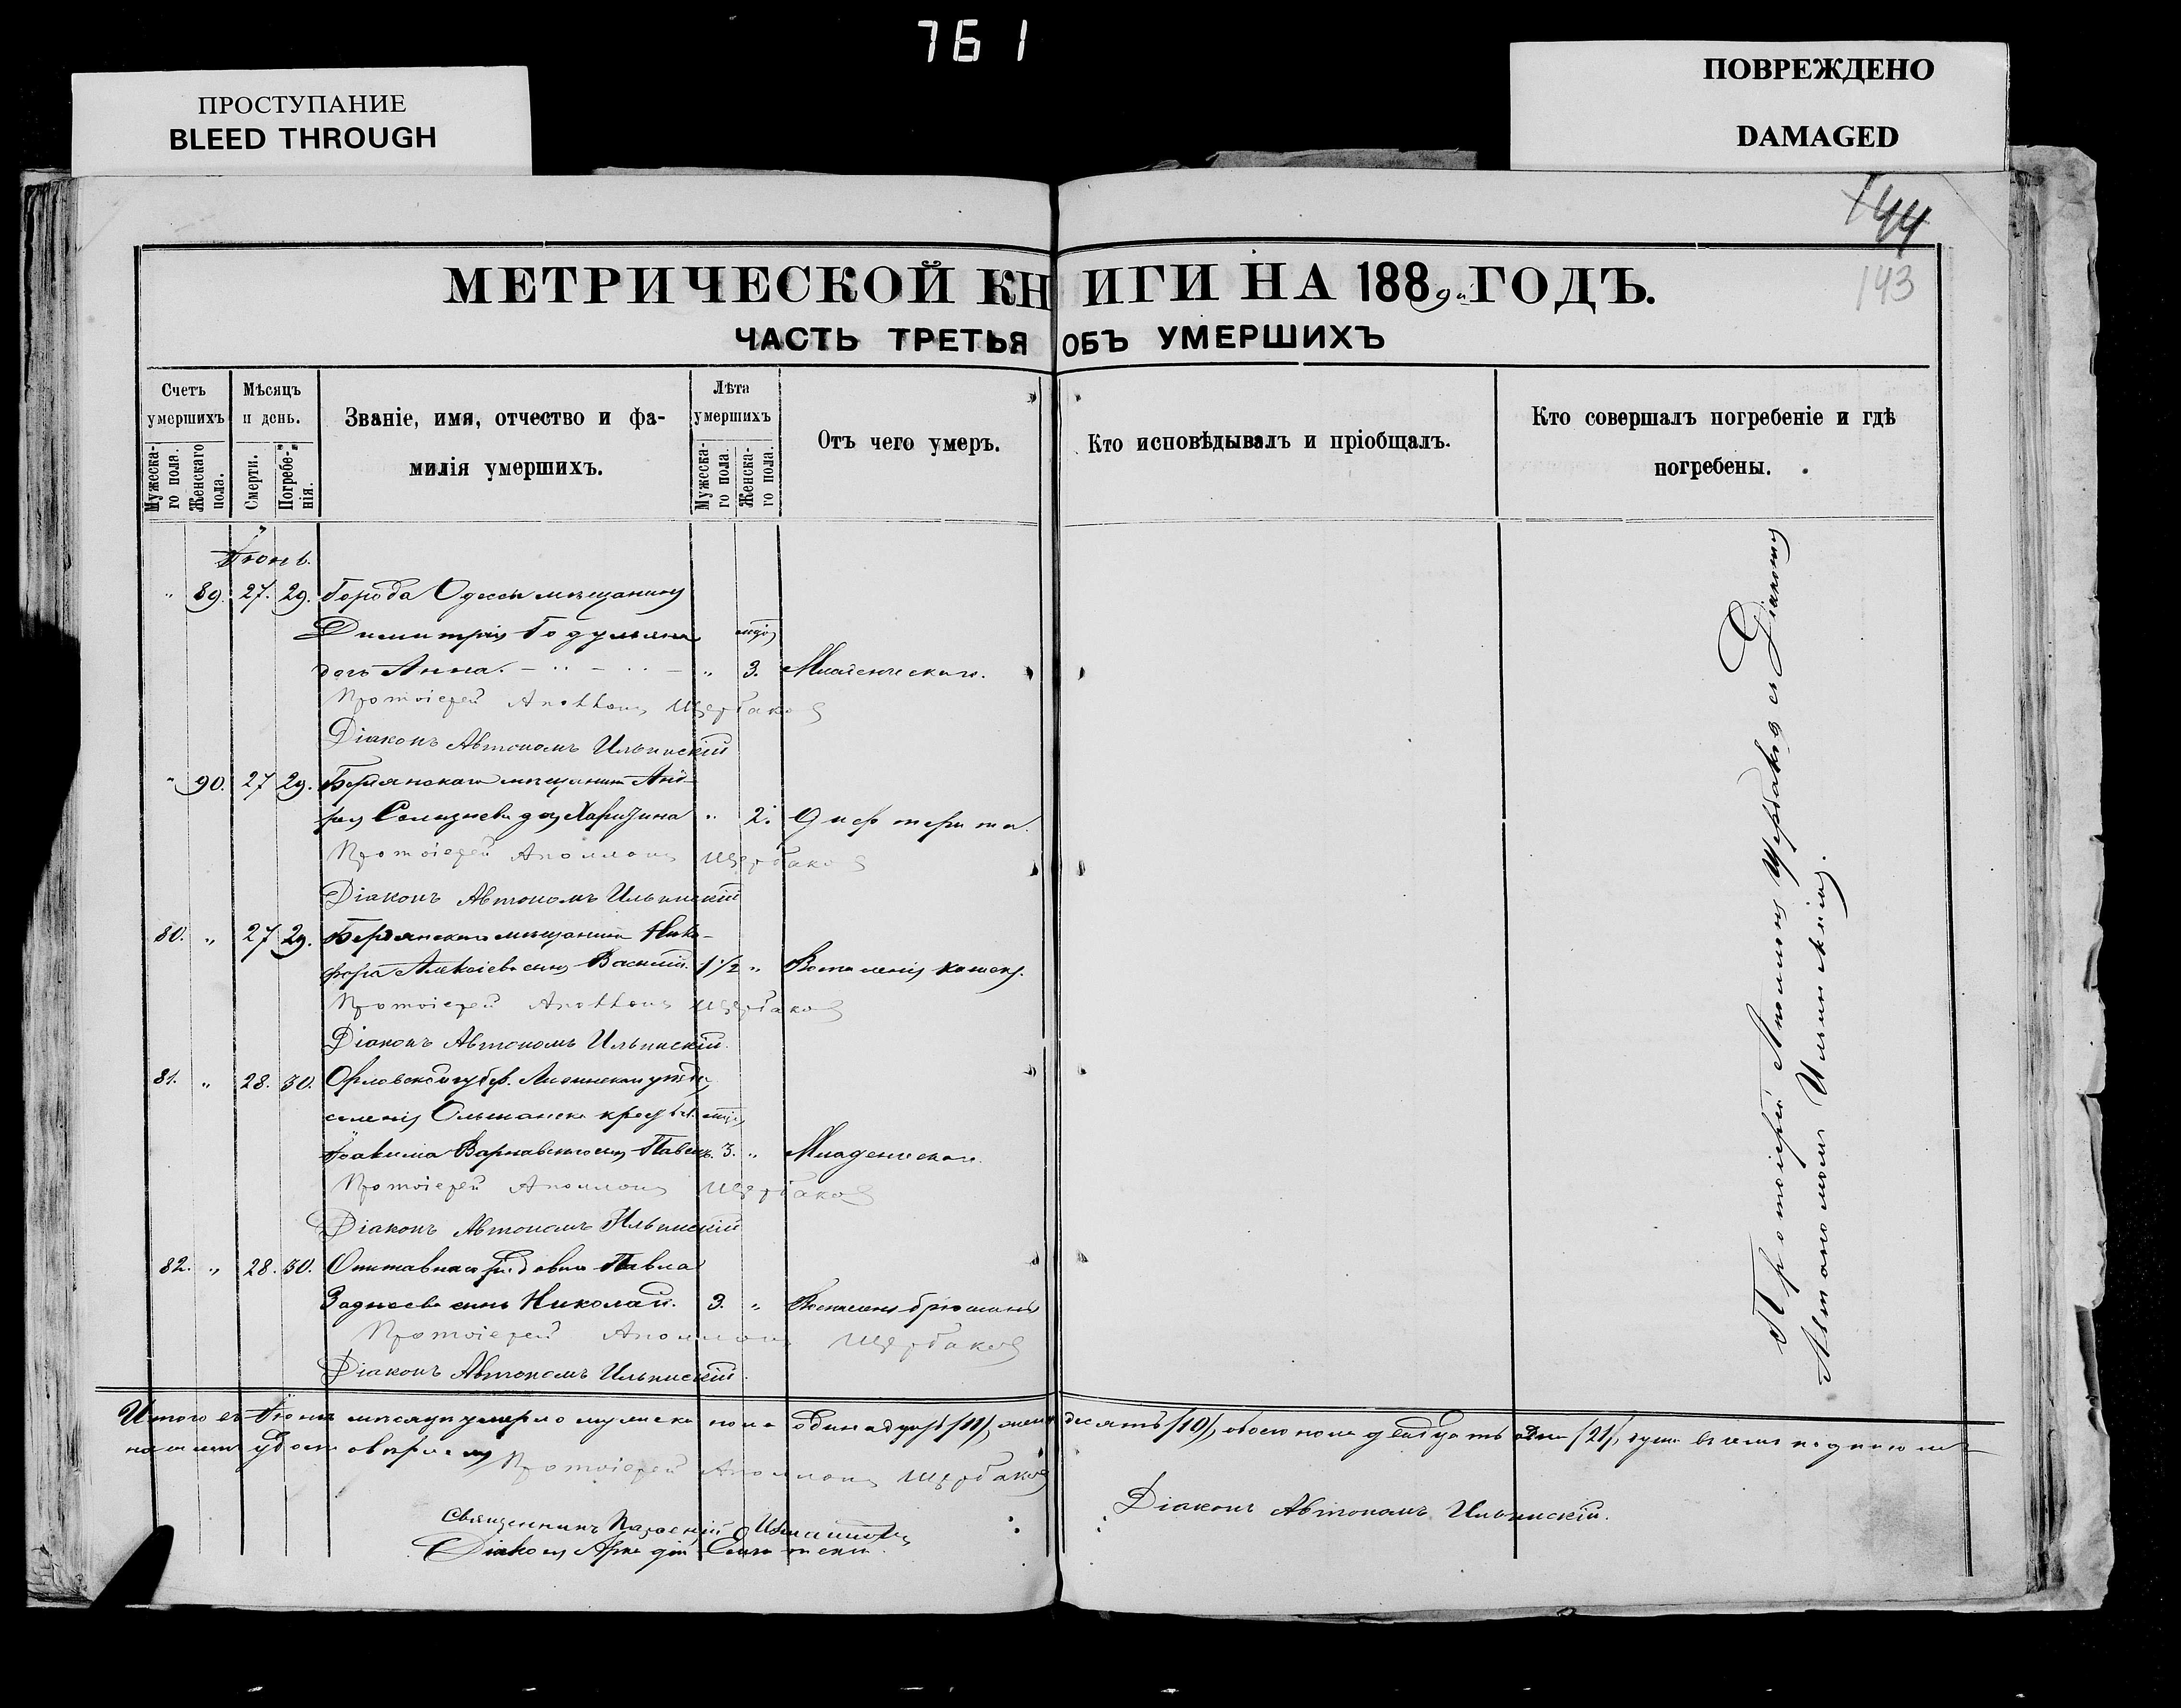 761
ПРОСТУПАНИЕ
BLEED THROUGH
ПОВРЕЖДЕНО
DAMAGED
144
143
МЕТРИЧЕСКОЙ КНИГИ НА 1889й ГОДЪ.
ЧАСТЬ ТРЕТЬЯ ОБЪ УМЕРШИХЪ
Счетъ умершихъ
Мужеска-го пола.
Женскаго пола.
Мѣсяцъ и день.
Смерти.
Погребе-нія.
Званіе, имя, отчество и фа-
милія умершихъ.
Лѣта умершихъ
Мужеска-го пола.
Женска-го пола.
Отъ чего умеръ.
Кто исповѣдывалъ и пріобщалъ.
Кто совершалъ погребеніе и гдѣ
погребены.
Іюнь.
" 89. 27. 29. Города Одессы мѣщанина
Димитрія
дочь Анна. " 3. Младенческаго.
Протоіерей Аполлонъ Щербаковъ
Діаконъ Автономъ Ильинскій
" 90. 27 29. Бердянскаго мѣщанина Анд-
рея Селизнева доч. " 2. Дифтерита.
Протоіерей Аполлонъ Щербаковъ
Діаконъ Автономъ Ильинскій
80. " 27 29. Бердянскаго мѣщанина Ники-
фора Алексіева сынъ Василій. 1 1/2 " Воспаленія кишекъ.
Протоіерей Аполлонъ Щербаковъ
Діаконъ Автономъ Ильинскій.
81. " 28. 30. Орловской губер. уѣзда
селенія Ольшанска крест.
Іоакима сынъ Павелъ. 3. " Младенческаго.
Протоіерей Аполлонъ Щербаковъ
Діаконъ Автономъ Ильинскій
82. " 28. 30. Отставнаго рядоваго Павла
сынъ Николай. 3. " Воспаленія брюшины
Протоіерей Аполлонъ Щербаковъ
Діаконъ Автономъ Ильинскій.
Протоіерей Аполлонъ Щербаковъ съ Діакономъ
Автономомъ Ильинскимъ.
Итого въ Іюнѣ мѣсяцѣ умерло мужеска пола одинадцать (11), женска десять (10), обоего пола двадцать одна (21), душа
Протоіерей Аполлонъ Щербаковъ
Священникъ
Діаконъ Аркадій
Діаконъ Автономъ Ильинскій.